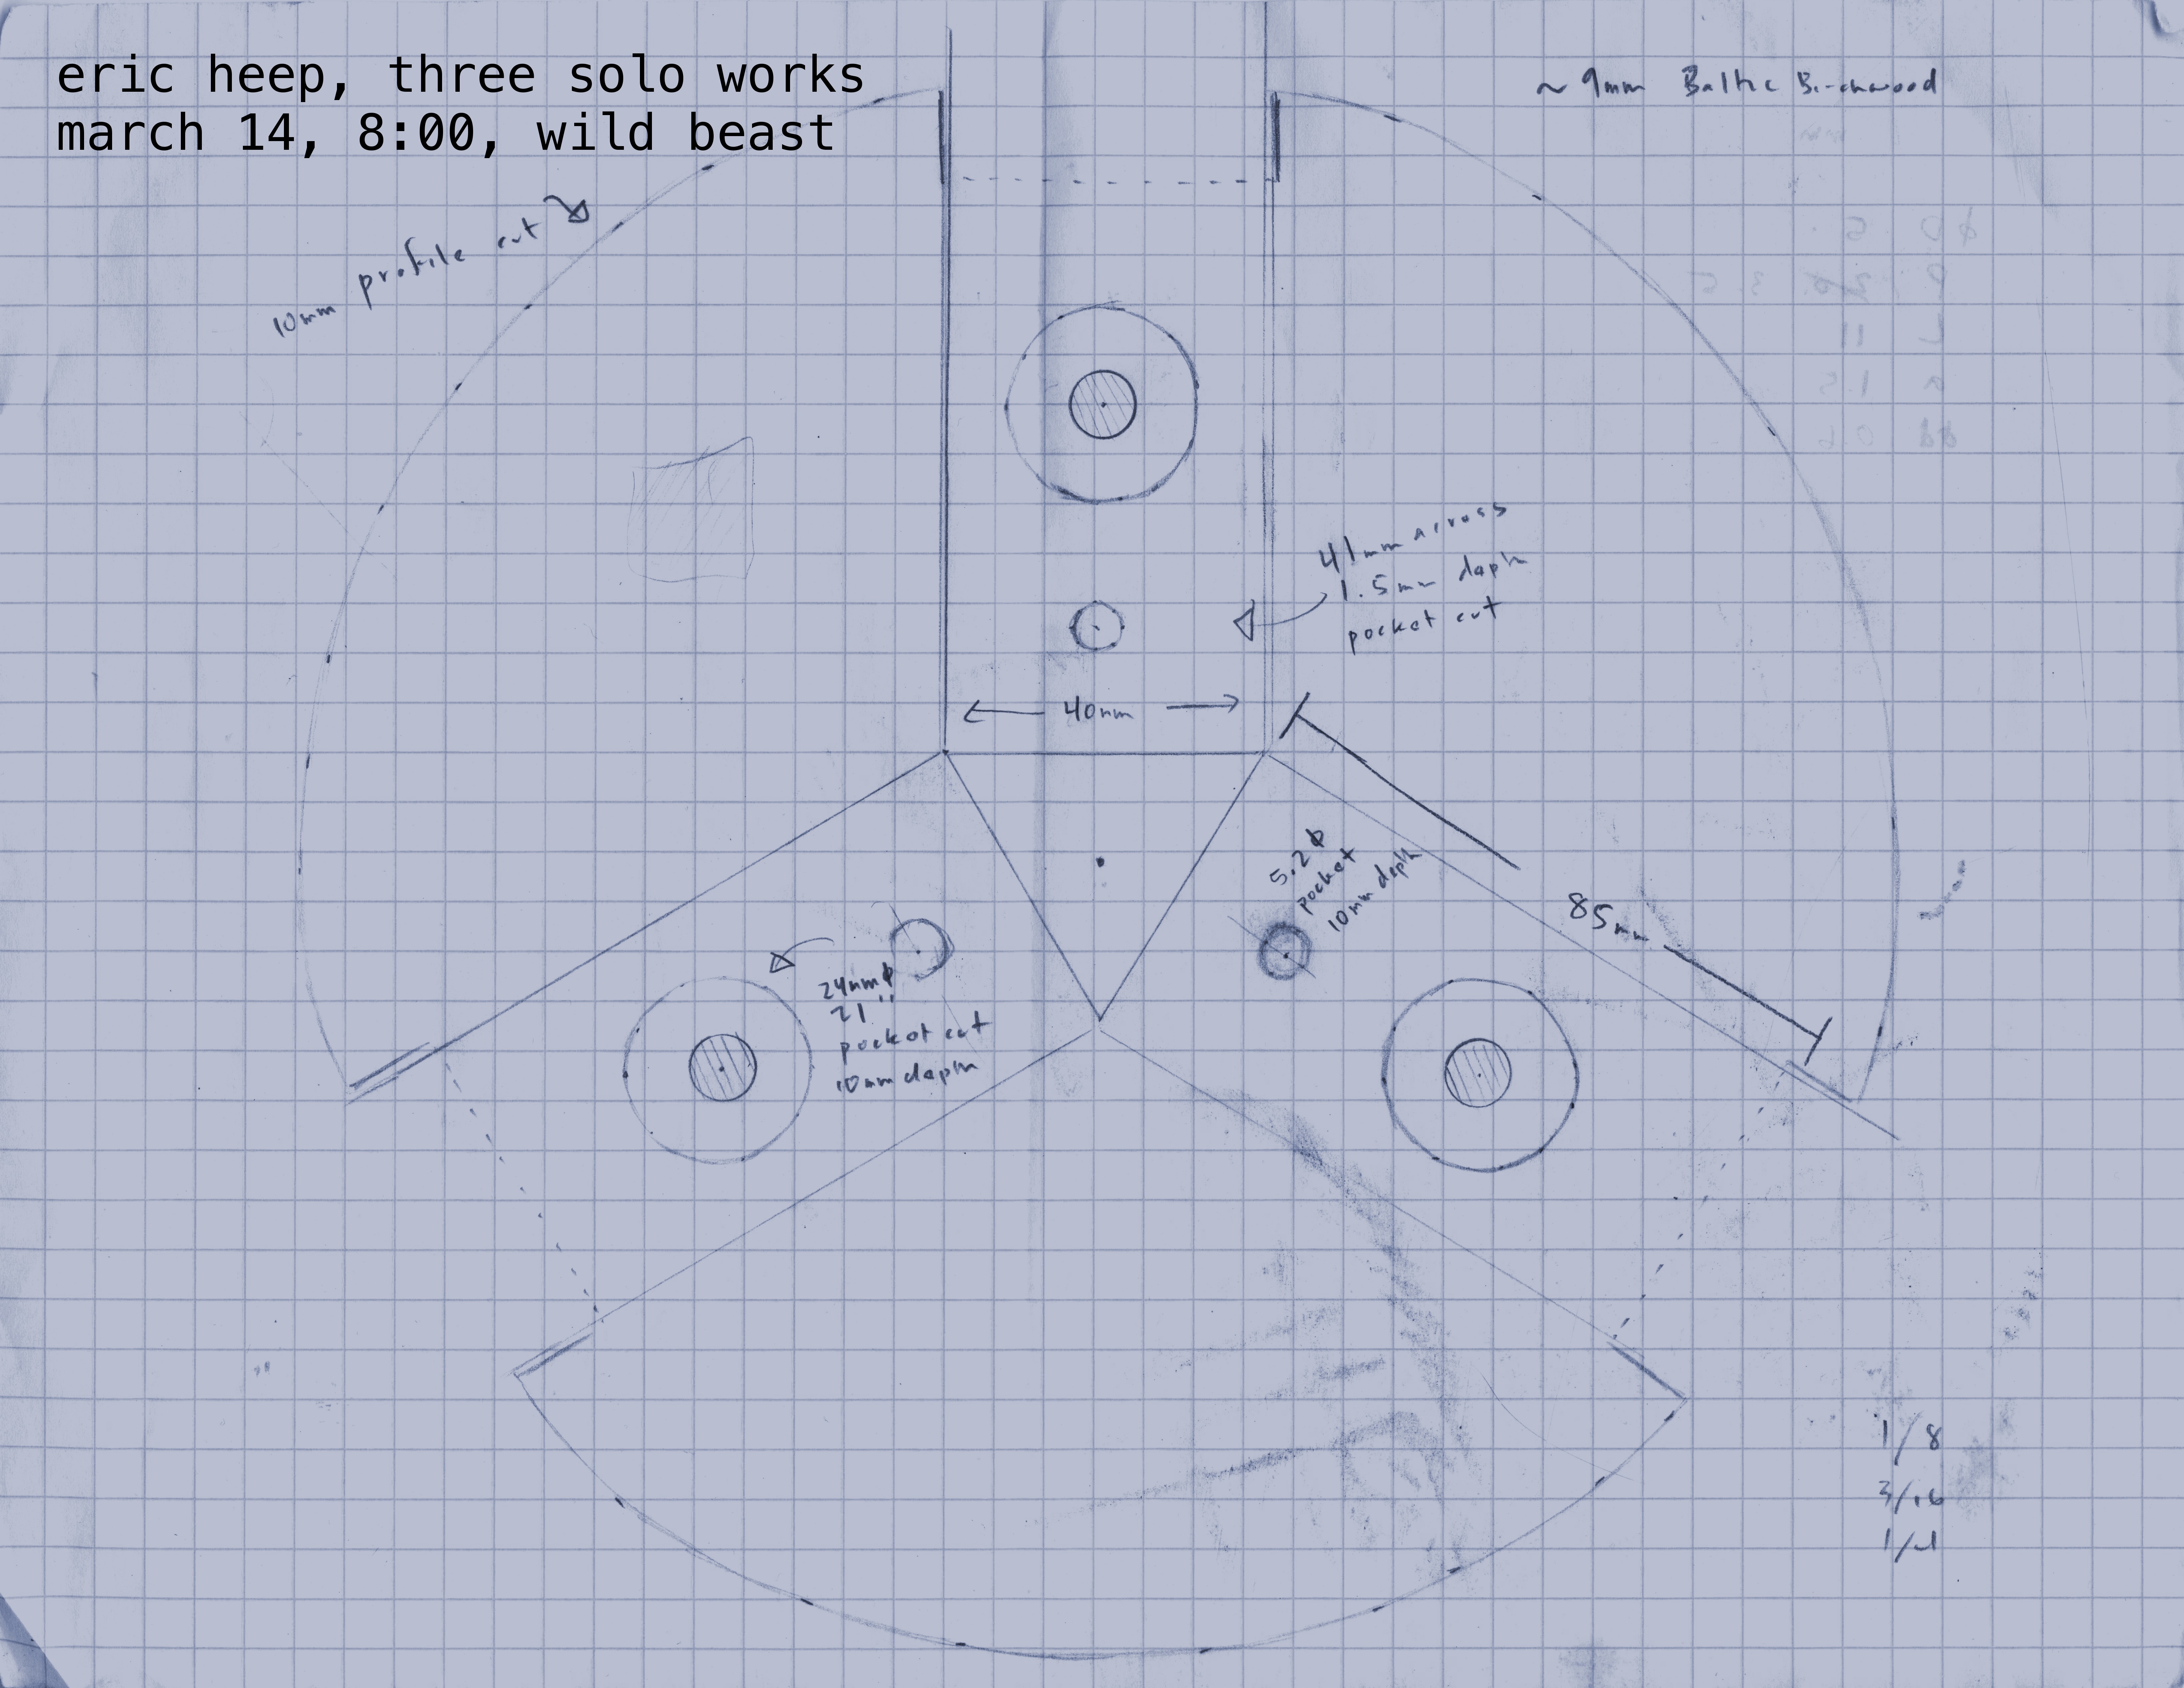 eric heep, three solo works
march 14, 8:00, wild beast
~ 9mm Baltic Birchwood
10mm profile cut
41mm across
1.5mm depth
pocket cut
40mm
5.2 ϕ
pocket
10mm depth
85mm
24mm ϕ
21 "
pocket cut
10mm depth
1/8
3/16